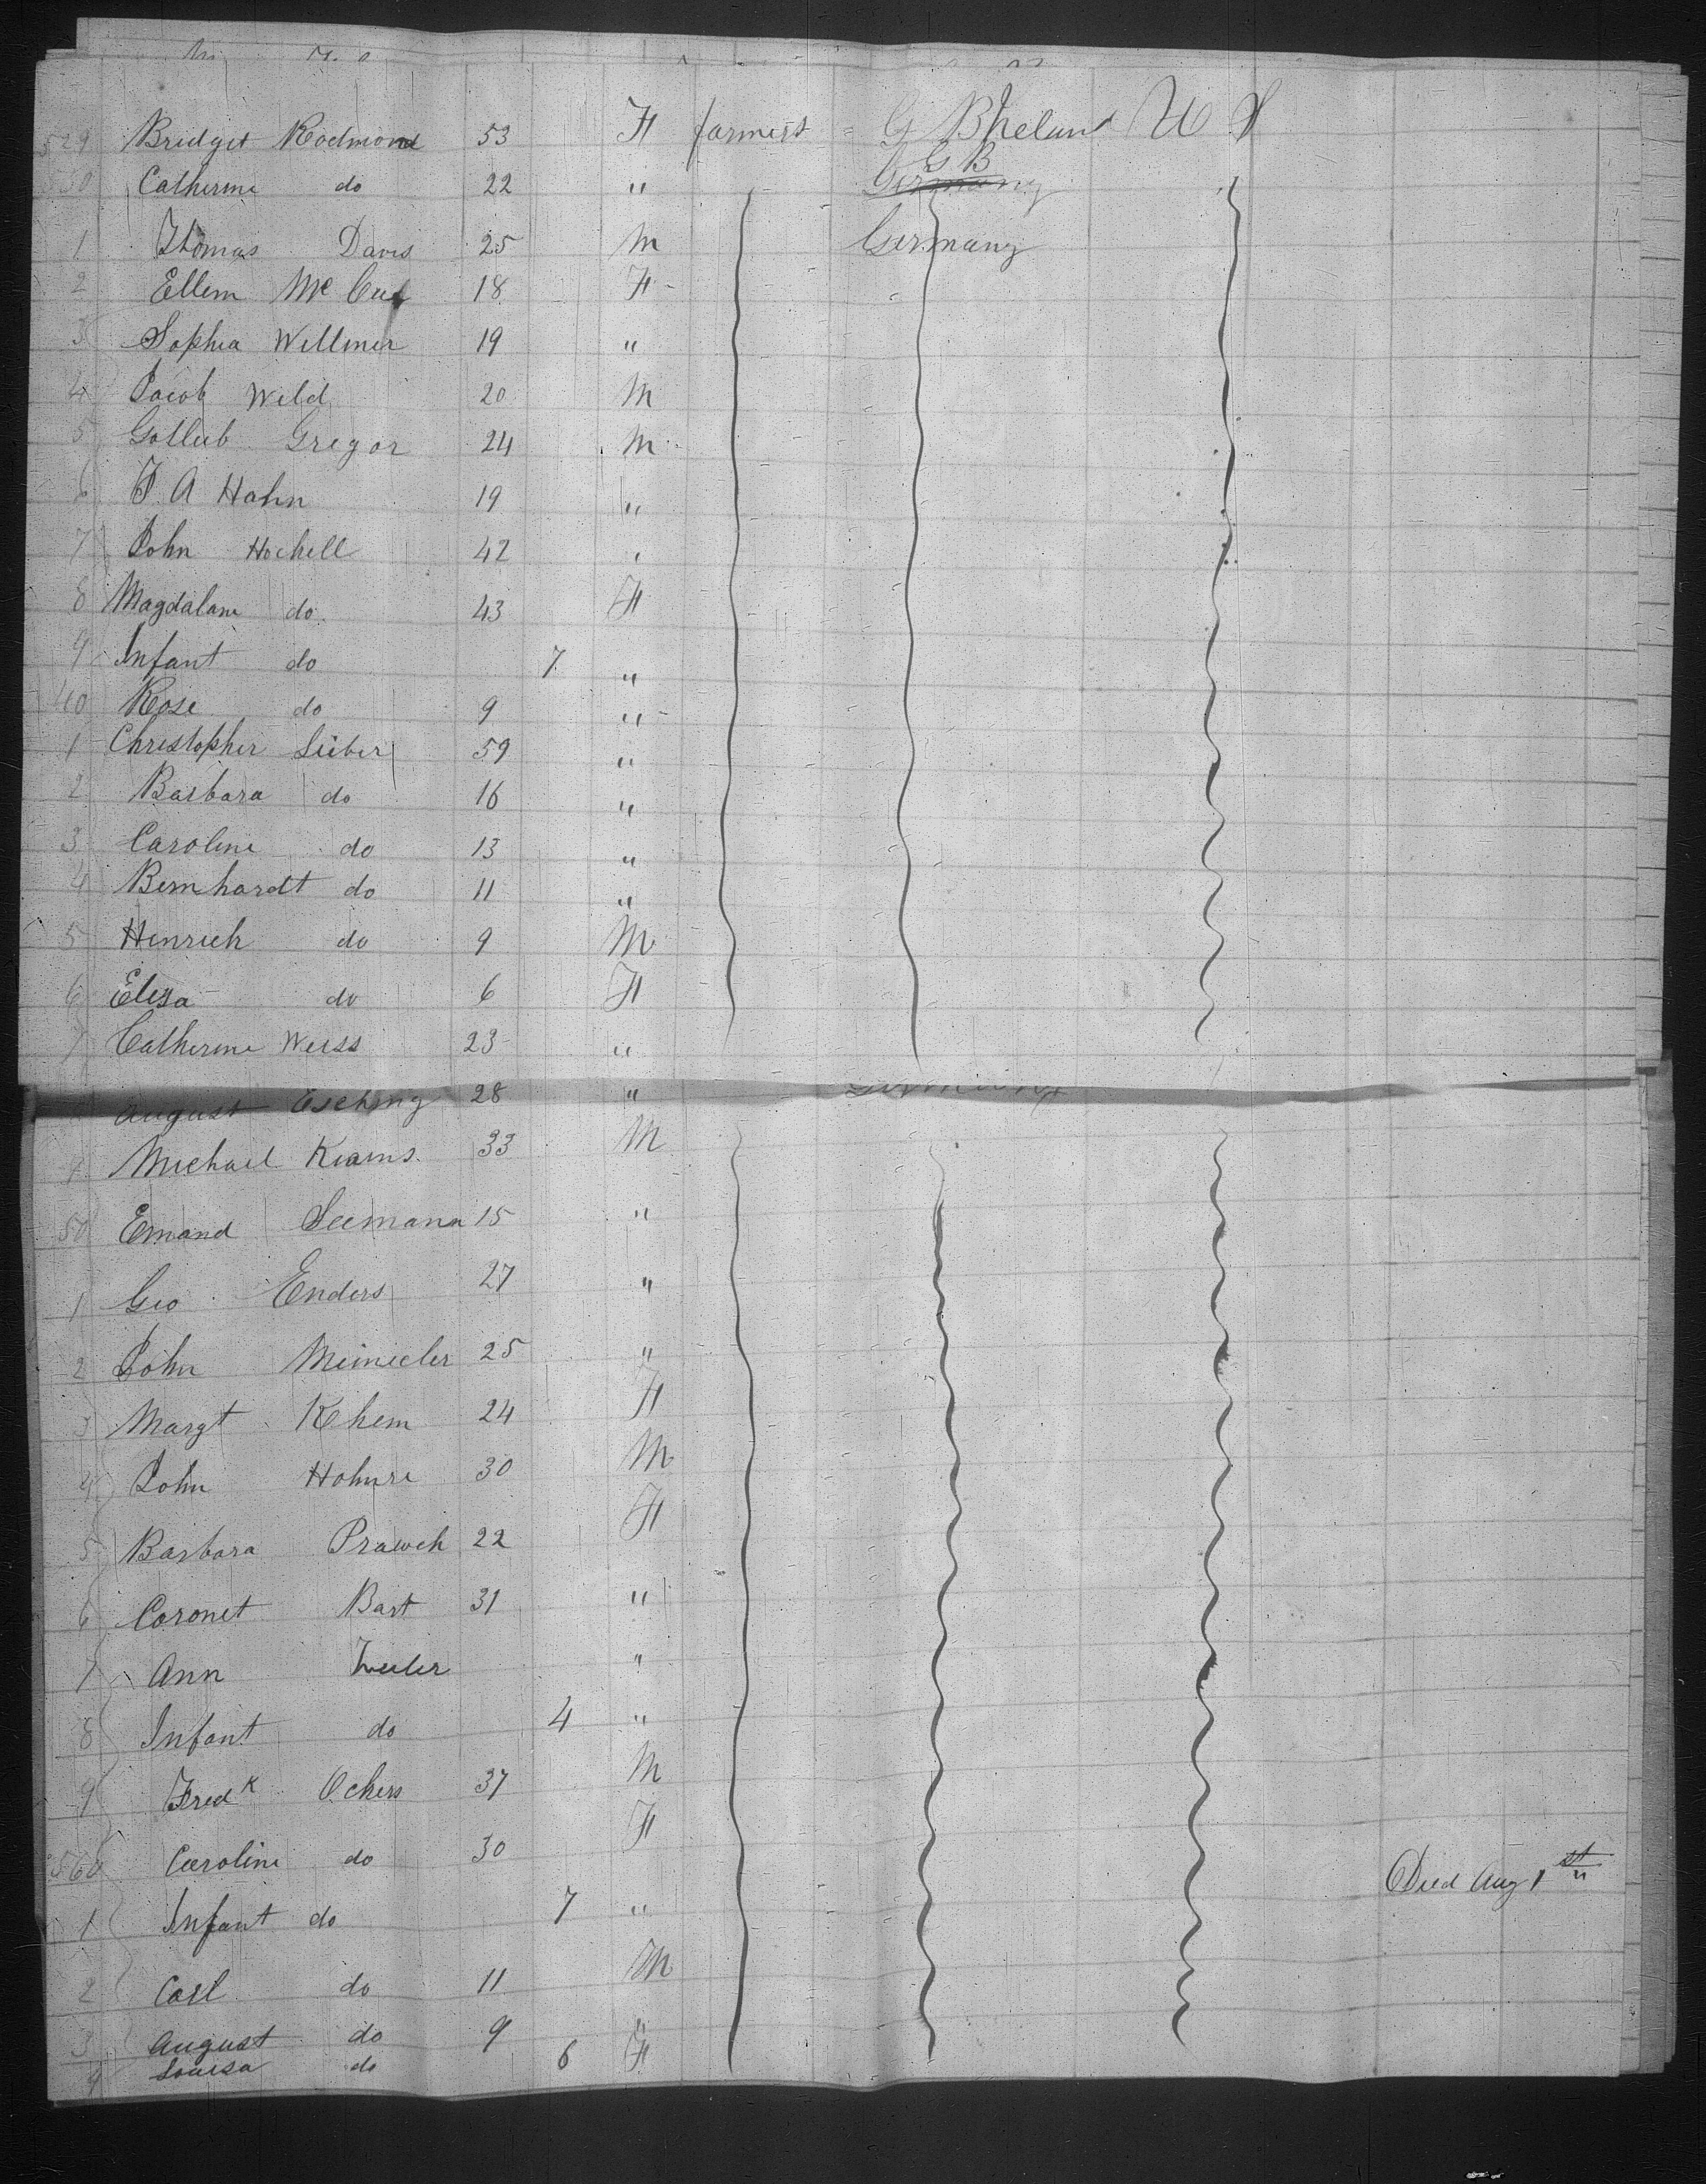 529 Bridget Redmond 53 F farmers G B U S
530 Catherine do 22 " G B Germany
1 Thomas Davis 25 M Germany
2 Ellen Mc 18 F
3 Sophia Willmer 19 "
4 Jacob Weld 20 M
5 Gotleib Gregor 24 M
6 J. A Hahn 19 "
7 John Hochell 42 "
8 Magdalane do 43 F
9 Infant do 7 "
40 Rose do 9 "
1 Christopher Lieber 59 "
2 Barbara do 16 "
3 Caroline do 13 "
4 Bernhardt do 11 "
5 Henrich do 9 M
6 Elisa do 6 F
7 Catherine Weiss 23 "
August Esching 28 " Germany
9 Michael Krams 33 M
50 Emand Seemann 15 "
1 Geo Enders 27 "
2 John 25 "
3 Margt Rhem 24 F
4 John Hohnre 30 M
5 Barbara 22 F
6 Coronet Bart 31 "
7 Ann "
8 Infant do 4 "
9 Fredk Ochers 37 M
560 Caroline do 30 F
1 Infant do 7 " Died Aug 1st "
2 Carl do 11 M
3 August do 9 "
4 Louisa do 6 F